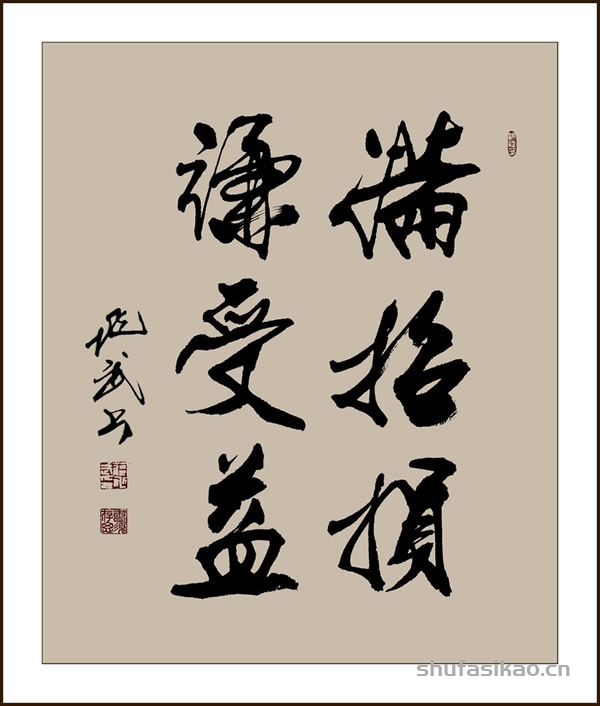 满招損
谦受益
shufasikao.cn